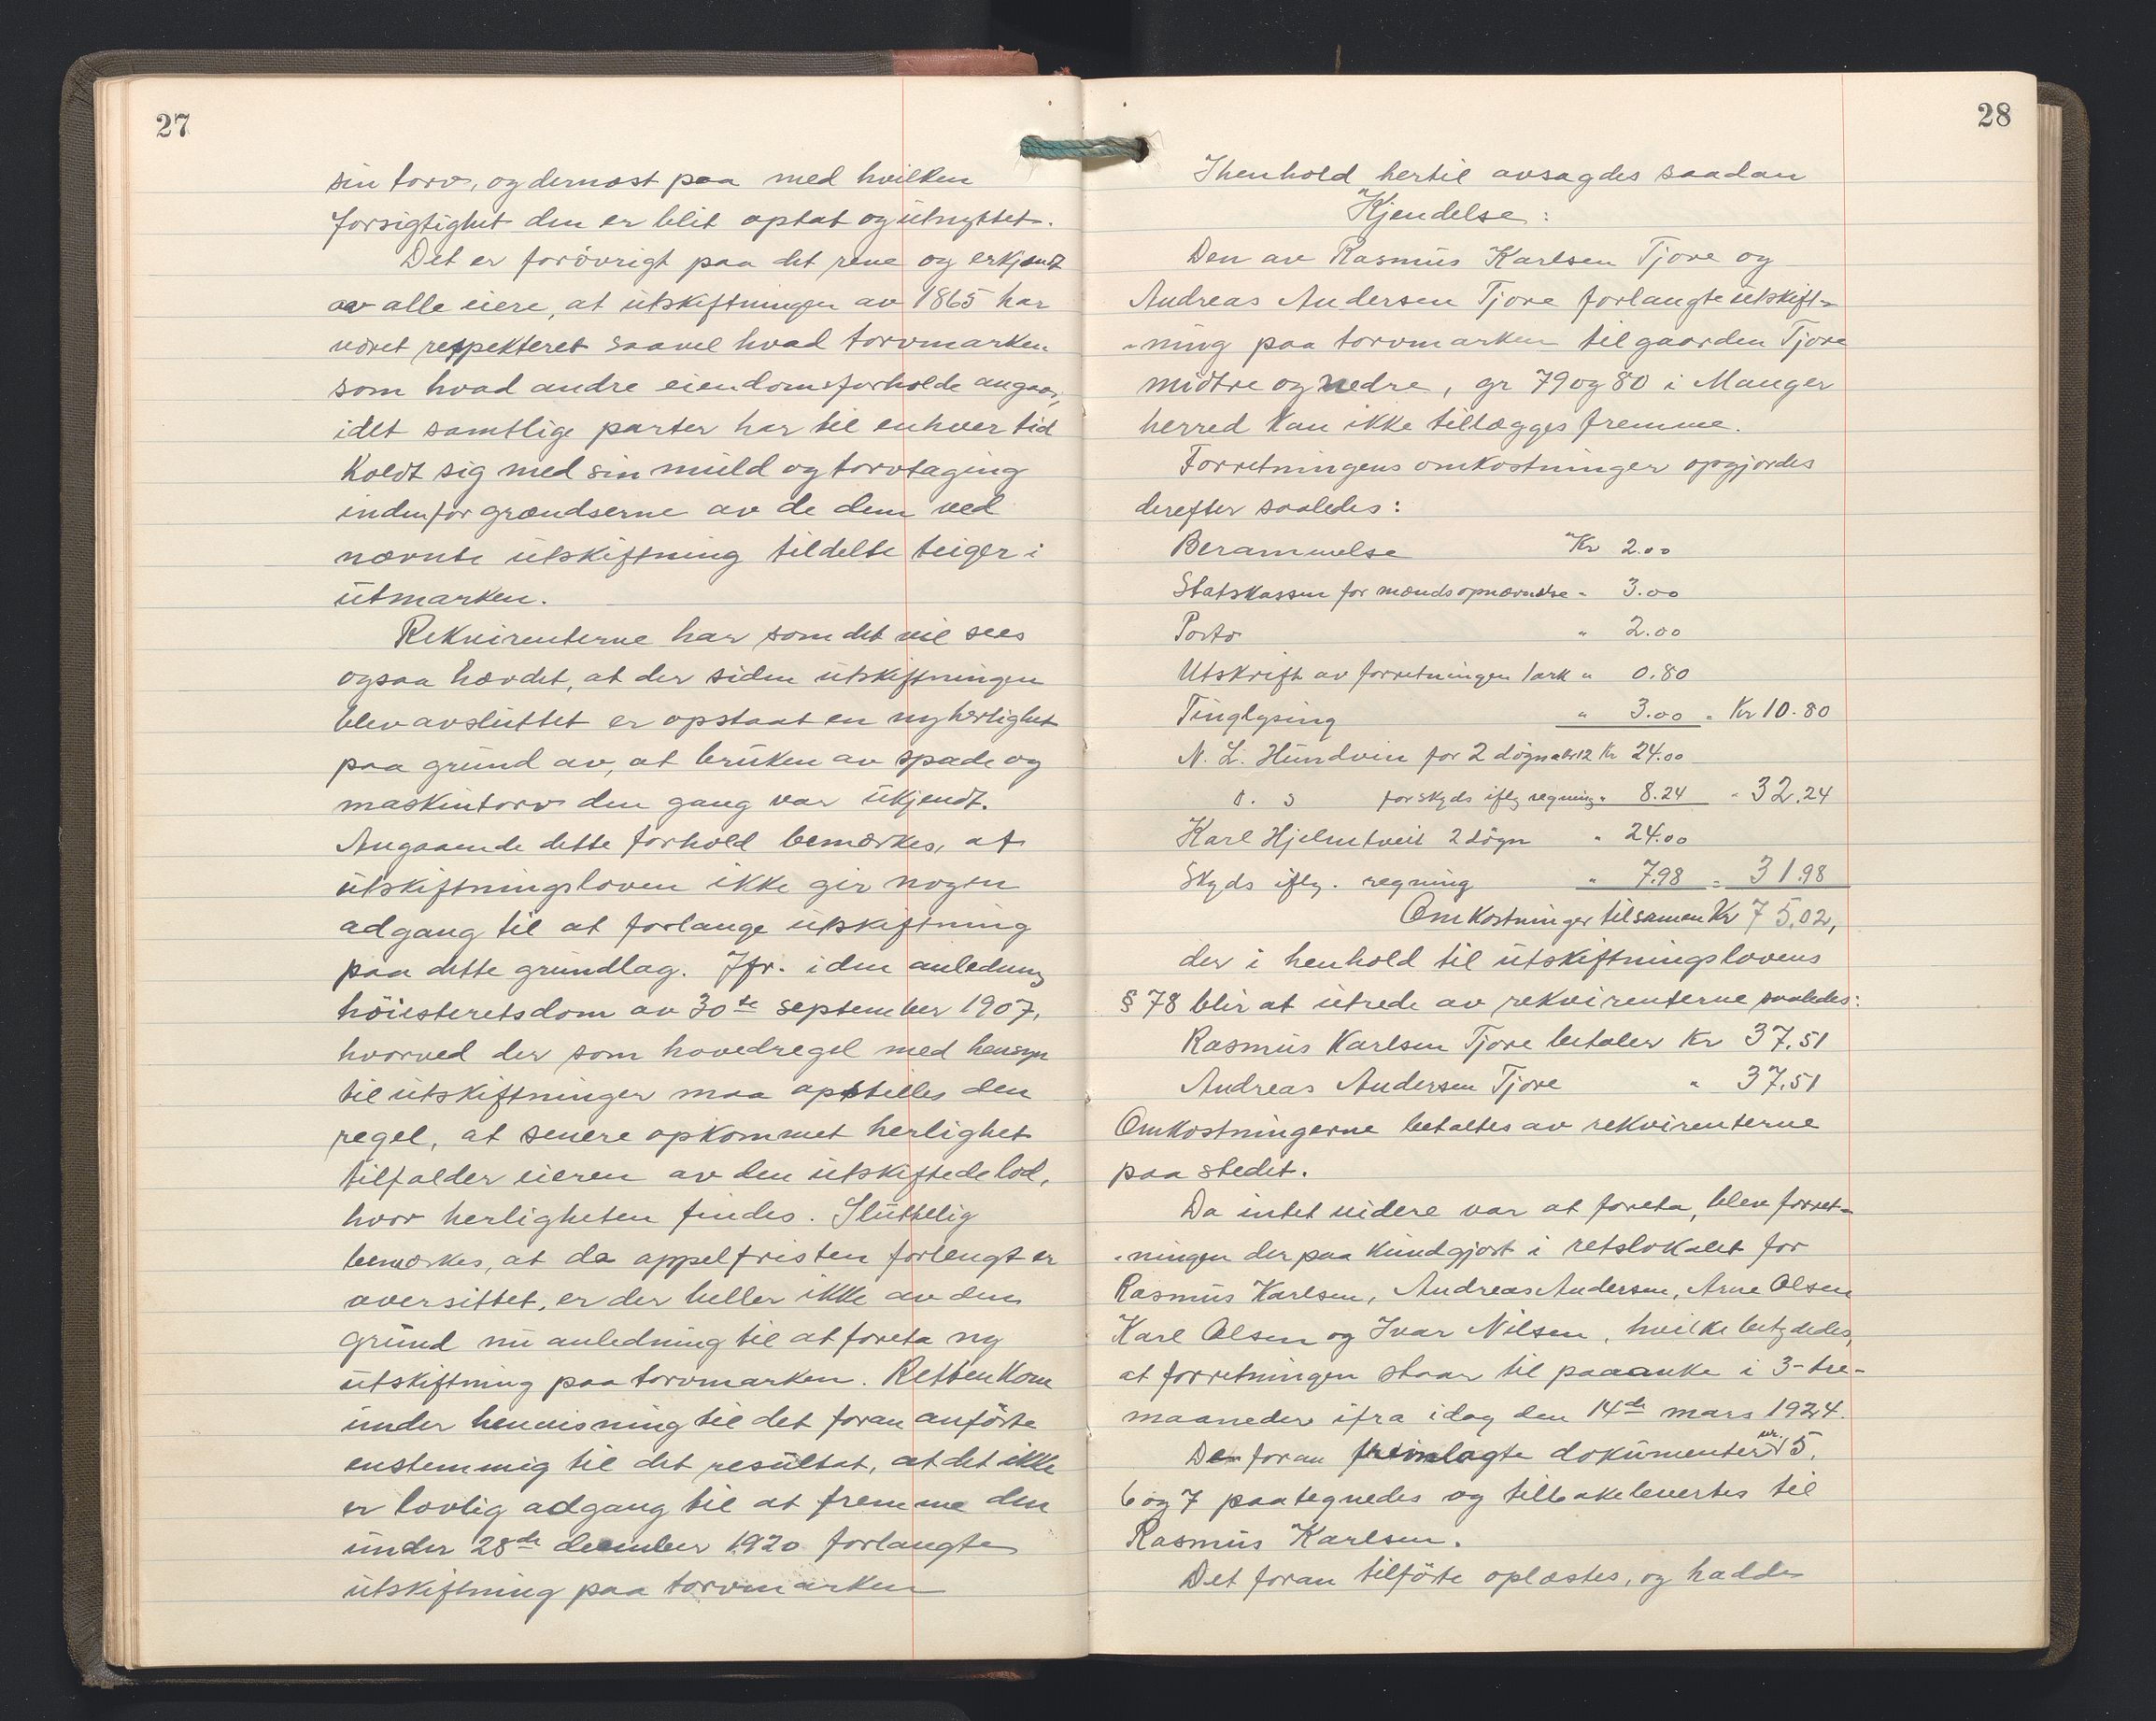 27
sin torv, og dernæst paa med hvilken
forsigtighet den er blit optat og utnyttet.
Det er forövrigt paa det rene og erkjendt
av alle eiere, at utskiftningen av 1865 har
været respekteret saavel hvad torvmarken
som hvad andre eiendomsforholde angaar,
idet samtlige parter har til enhver tid
holdt sig med sin muld og torvtaging
indenfor grændserne av de dem ved
nævnte utskiftning tildelte teiger i
utmarken.
Rekvirenterne har som det vil sees
ogsaa hævdet, at der siden utskiftningen
blev avsluttet er opstaat en ny herlighet
paa grund av, at bruken av spade og
maskintorv den gang var ukjendt.
Angaaende dette forhold bemærkes, at
utskiftningsloven ikke gir nogen
adgang til at forlange utskiftning
paa dette grundlag. Jfr. i den anledning
höiesteretsdom av 30te september 1907,
hvorved der som hovedregel med hensyn
til utskiftninger maa opstilles den
regel, at senere opkommet herlighet
tilfalder eieren av den utskiftede lod,
hvor herligheten findes. Sluttelig
bemærkes, at da appelfristen forlengst er
oversittet, er der heller ikke av den
grund nu anledning til at foreta ny
utskiftning paa torvmarken. Retten kom
under henvisning til det foran anförte
enstemmig til det resultat, at det ikke
er lovlig adgang til at fremme den
under 28de december 1920 forlangte
utskiftning paa torvmarken
28
I henhold hertil avsagdes saadan
Kjendelse:
Den av Rasmus Karlsen Tjore og
Andreas Andersen Tjore forlangte utskift-
-ning paa torvmarken til gaarden Tjore
midtre og nedre, gr 79 og 80 i Manger
herred kan ikke tillægges fremme.
Forretningens omkostninger opgjordes
derefter saaledes:
Berammelse Kr 2.00
Statskassen for mændsopnævnelse " 3.00
Porto " 2.00
Utskrift av forretningen 1 ark " 0.80
Tinglysing " 3.00 = Kr 10.80
N. L. Hundvin for 2 dögn a kr 12 Kr 24.00
d. s for skyds iflg regning " 8.24 " 32.24
Karl Hjelmtveit 2 dögn " 24.00
Skyds iflg. regning " 7.98 = 31.98
Omkostninger tilsamen Kr 75.02,
der i henhold til utskiftningslovens
§ 78 blir at utrede av rekvirenterne saaledes:
Rasmus Karlsen Tjore betaler Kr 37.51
Andreas Andersen Tjore " 37.51
Omkostningerne betaltes av rekvirenterne
paa stedet.
Da intet videre var at foreta, blev forret-
-ningen derpaa kundgjort i retslokalet for
Rasmus Karlsen, Andreas Andersen, Arne Olsen
Karl Olsen og Ivar Nilsen, hvilke betydedes,
at forretningen staar til paaanke i 3-tre-
maaneder ifra idag den 14de mars 1924.
De foran fremlagte dokumenter nr. 5,
6 og 7 paategnedes og tilbakelevertes til
Rasmus Karlsen.
Det foran tilförte oplæstes, og hadde